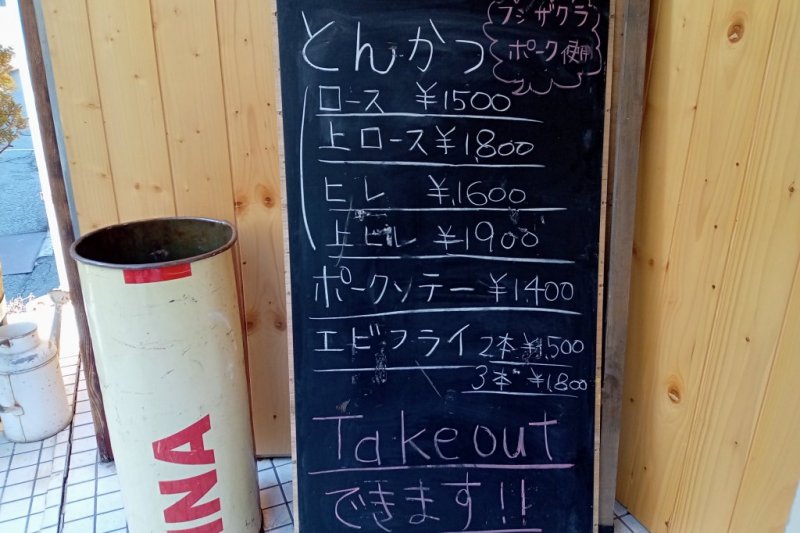 とんかつ
フジザクラ
ポーク使用
ロース ¥1500
上ロース ¥1,800
ヒレ ¥1,600
上ヒレ ¥1,900
ポークソテー ¥1,400
エビフライ 2本 ¥1,500
3本 ¥1,800
Takeout
できます!!
INA